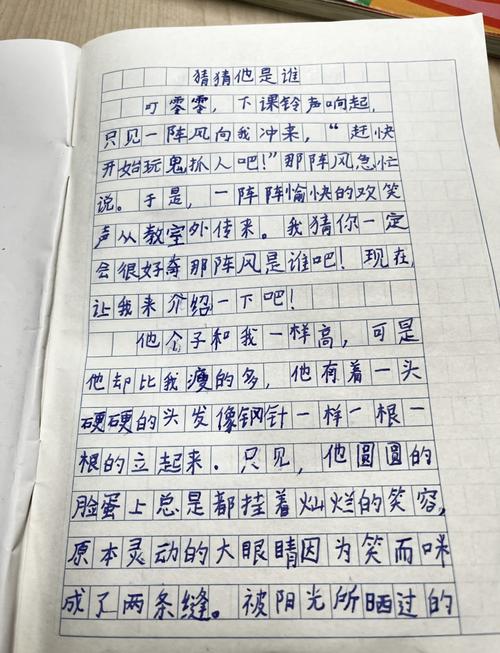 猜猜他是谁
叮零零，下课铃声响起，
只见一阵风向我冲来，“赶快
开始玩鬼抓人吧！”那阵风急忙
说。于是，一阵阵愉快的欢笑
声从教室外传来。我猜你一定
会很好奇那阵风是谁吧！现在，
让我来介绍一下吧！
他个子和我一样高，可是
他却比我瘦的多，他有着一头
硬硬的头发像钢针一样一根一
根的立起来．只见，他圆圆的
脸蛋上总是都挂着灿烂的笑容，
原本灵动的大眼睛因为笑而咪
成了两条缝。被阳光所晒过的